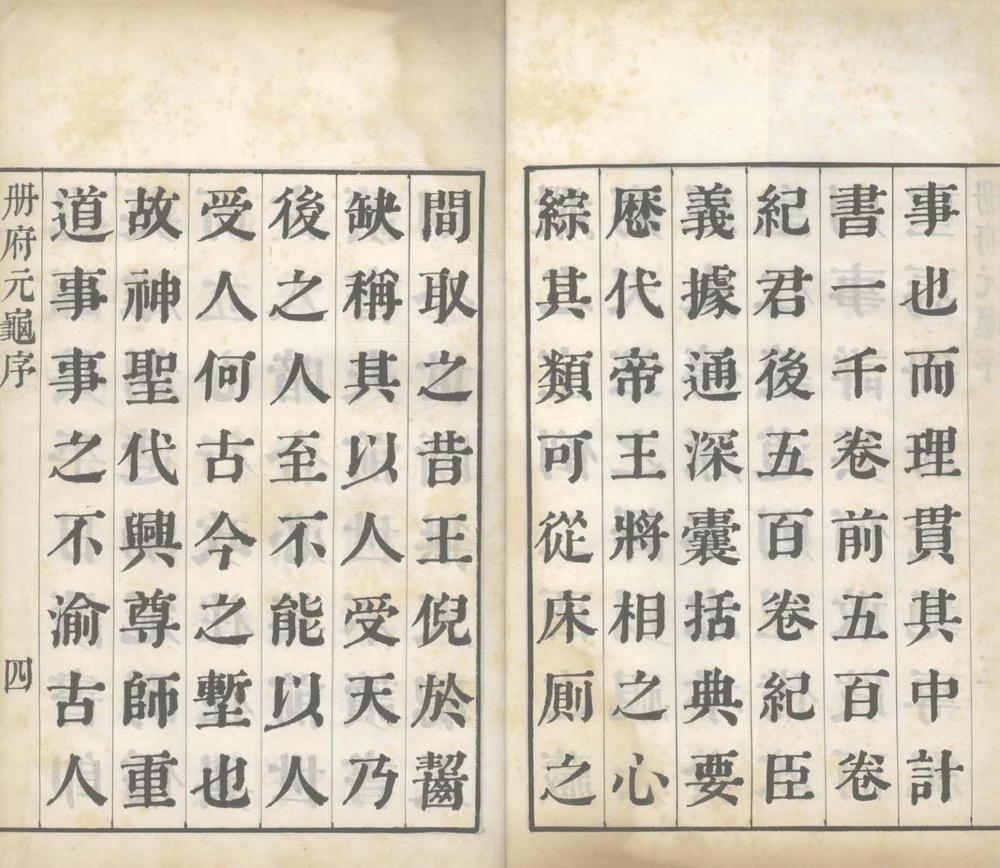 事也而理貫其中計
書一千卷前五百卷
紀君後五百卷紀臣
義據通深囊括典要
厯代帝王將相之心
綜其類可從床厠之
間取之昔王倪於齧
缺稱其以人受天乃
後之人至不能以人
受人何古今之塹也
故神聖代興尊師重
道事事之不渝古人
册府元龜序
四